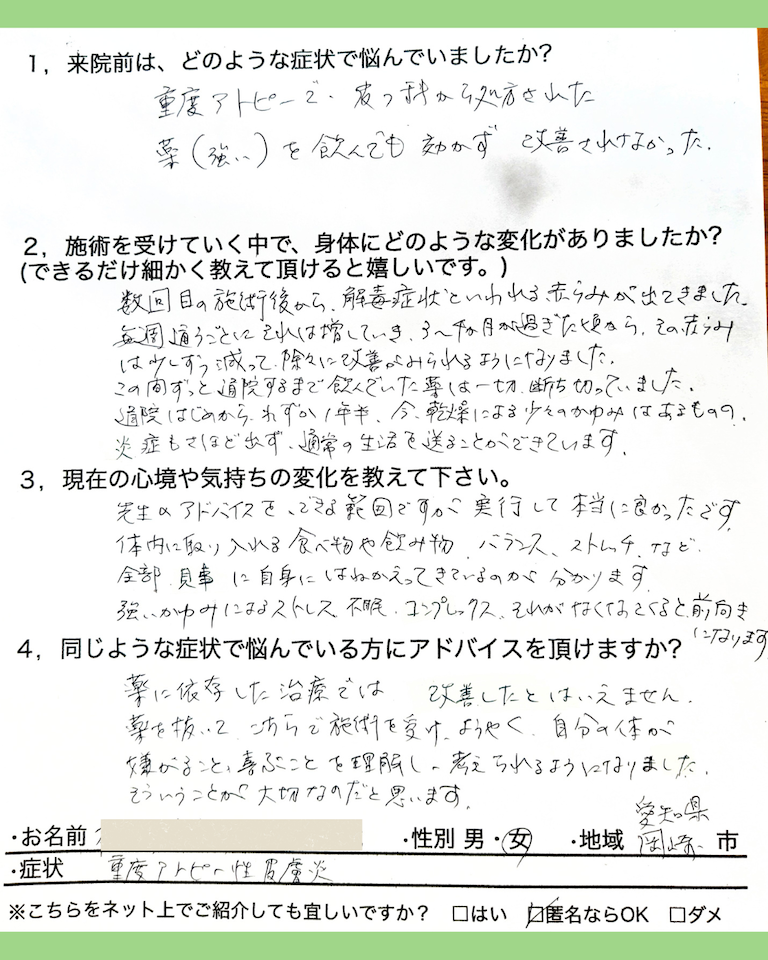 1，来院前は、どのような症状で悩んでいましたか?
重度アトピーで、皮フ科から処方された
薬（強い）を飲んでも効かず 改善されなかった.
2，施術を受けていく中で、身体にどのような変化がありましたか?
(できるだけ細かく教えて頂けると嬉しいです。)
数回目の施術後から、解毒症状といわれる赤らみが出てきました.
毎週通うごとにそれは増していき、3〜4ヶ月が過ぎた頃から、その赤らみ
は少しずつ減って、除々に改善がみられるようになりました.
この間ずっと通院するまで飲んでいた薬は一切、断ち切っていました.
通院はじめから、わずか1年半、今、乾燥による少々のかゆみはあるものの、
炎症もさほど出ず、通常の生活を送ることができています.
3，現在の心境や気持ちの変化を教えて下さい。
先生のアドバイスを、できる範囲ですが実行して本当に良かったです.
体内に取り入れる食べ物や飲み物、バランス、ストレッチ、など、
全部、見事に自身にはねかえってきているのが分かります.
強いかゆみによるストレス、不眠、コンプレックス、それがなくなってくると、前向き
になります
4，同じような症状で悩んでいる方にアドバイスを頂けますか?
薬に依存した治療では 改善したとはいえません.
薬を抜いて、こちらで施術を受け、ようやく、自分の体が
嫌がること、喜ぶことを理解し、考えられるようになりました.
そういうことが大切なのだと思います.
・お名前 ・性別 男・女 ・地域 愛知県岡崎市
・症状 重度アトピー性皮膚炎
※こちらをネット上でご紹介しても宜しいですか? □はい ☑匿名ならOK □ダメ